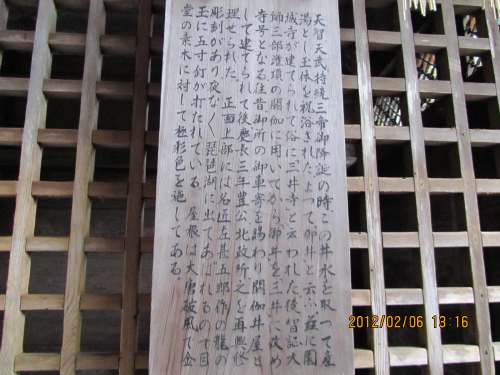 天智天武持統三帝御降誕の時この井水を取って産
湯とし玉体を祝浴されたよって御井と云ふ茲に園
城寺が建てられて俗に三井寺と云われた後智証大
師三部潅頂の閼伽に用いてから御井を三井に改め
寺号となる往昔御所の御車寄を賜わり閼伽井屋と
して建てられて後慶長三年豊公北政所之を再興修
理せられた 正面上部には名匠左甚五郎作の龍の
彫刻があり夜なく琵琶湖に出てあばれるので目
玉に五寸釘が打たれている 屋根は大唐破風で金
堂の素木に対して極彩色を施してある。
2012/02/06 13:16